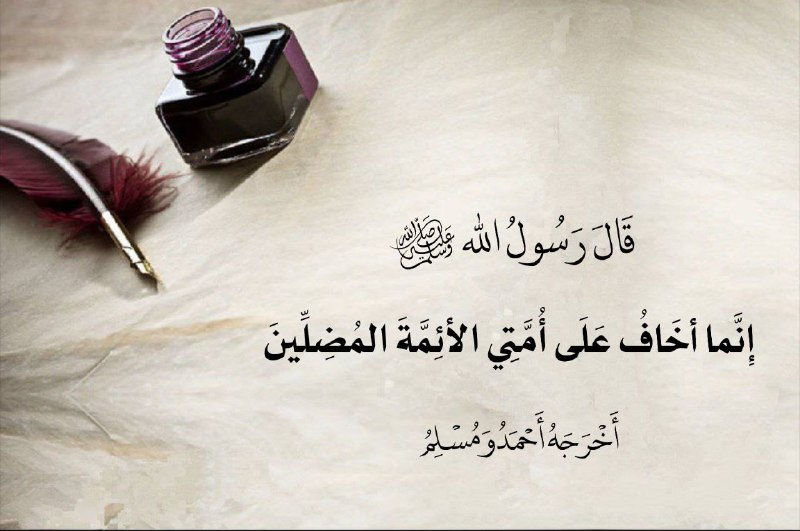 قَالَ رَسُولُ الله ﷺ
إِنَّما أخَافُ عَلَى أُمَّتِي الأئِمَّةَ المُضِلِّينَ
أَخْرَجَهُ أَحْمَدُ وَمُسْلِمُ